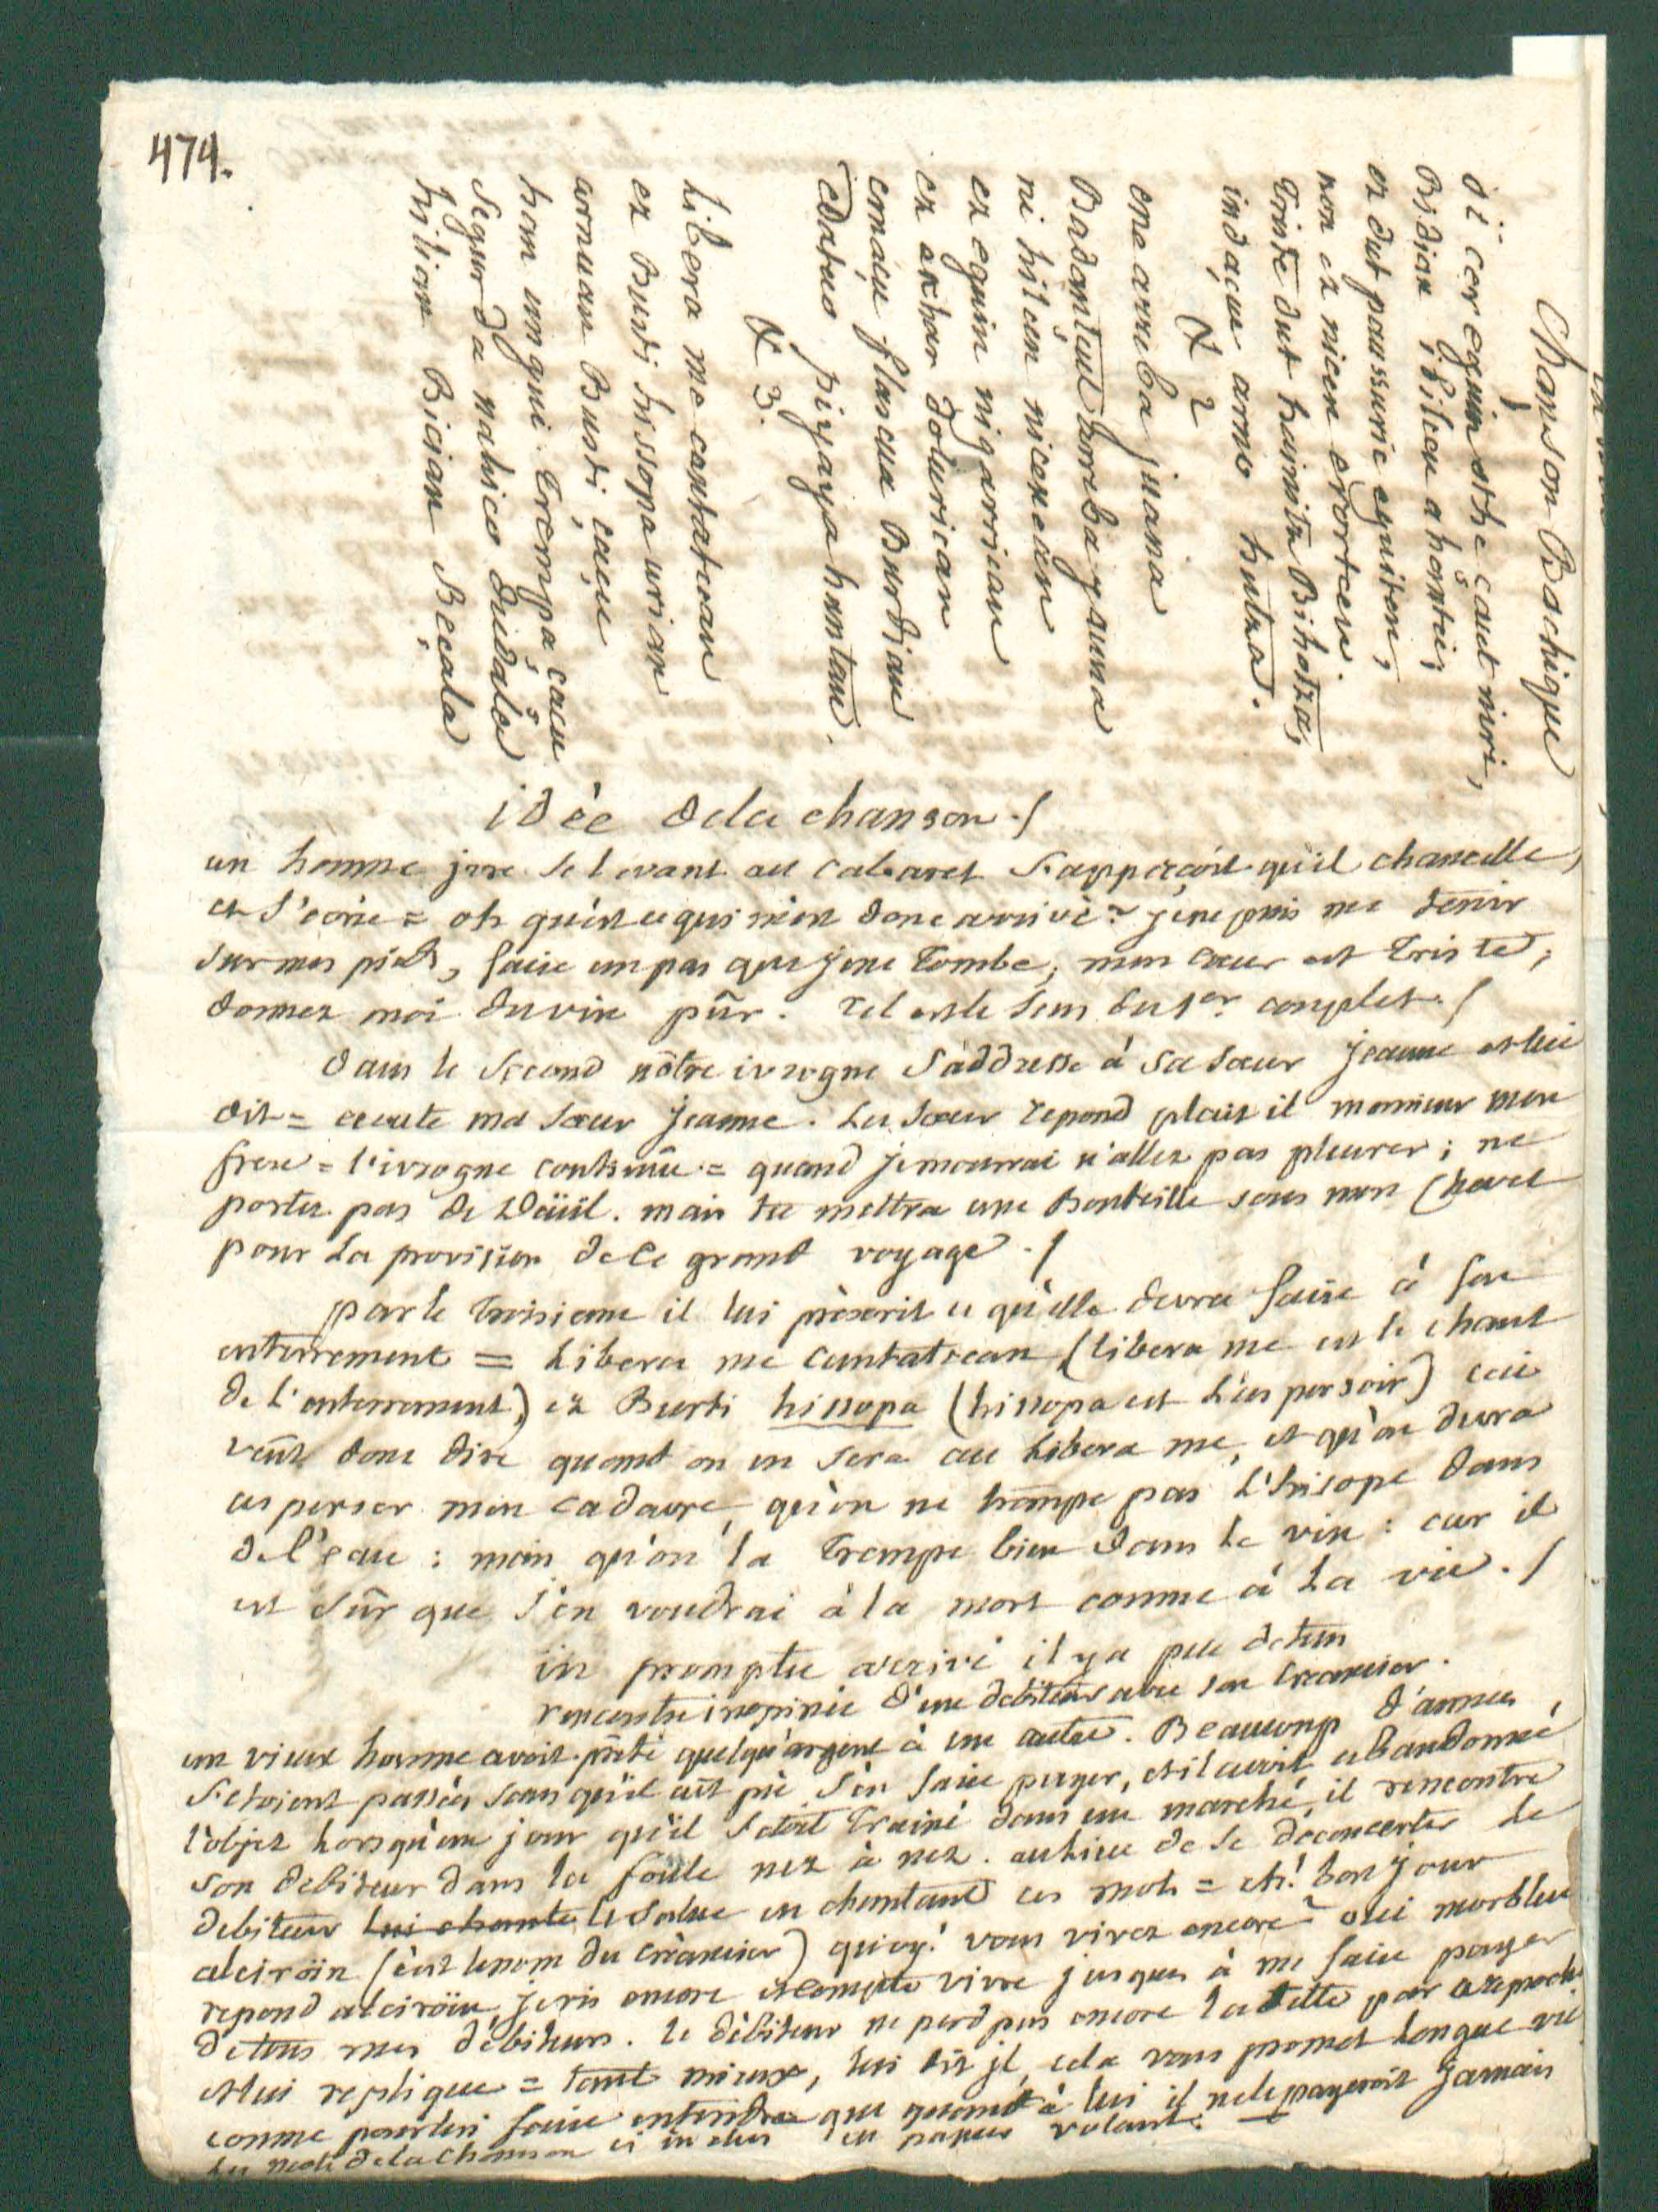 474.
Chanson Bachique
1
oi cer eguin othe çaut niri,
Bidian ibilcen ahantci;
ez dut paussuric eguiten,
non ez nicen erortcen.
Triste dut haimitz Bihotza,
indaçue arno hutza.
& 2
ene arreba juana
Badantçut arreba jauna
ni hilcen nicenean
ez eguin nigarrican
ez ekhar dolurican
emaçu flascua Burdian
edateo piyaya hantan.
& 3.
Libera me cantatcean
ez Busti hissopa urian
arnuan Busti çaçu
han ungui trempa çaçu
Segur da nahico dudala
hilian Bician Beçala
idèe dela chanson ./
un homme jvre se levant au cabaret s'apperçoit qu'il chancelle,
et s'écrie = oh qu'est ce qui m'est donc arrivé? je ne puis me tenir
sur mes pieds, faire un pas que je ne tombe; mon cœur est triste;
donnez moi du vin pûr. tel est le sens du 1er couplet. /
dans le second nôtre ivrogne s'addresse à sa sœur jeanne et lui
dit = ecoute ma sœur jeanne. La sœur repond plait il monsieur mon
frere = l'ivrogne continüe = quand je mourrai n'allez pas pleurer; ne
portez pas de deüil. mais tu mettra une Bouteille sous mon chevet
pour la provision de ce grand voyage ./
par le troisieme il lui prèscrit ce qu'elle devra faire à son
enterrement = Libera me cantatcean (libera me est le chant
de l'enterrement) ez Busti hissopa (hissopa est l'aspersoir) ceci
veut donc dire quand on en sera au Libera me, et qu'on devra
asperser mon cadavre, qu'on ne trempe pas l'hisope dans
de l'eau : mais qu'on la trempe bien dans le vin : car il
est sûr que j'en voudrai à la mort comme à la vie. /
in promptu arrivé il y a peu de tems
rencontre inopinée d'un debiteur avec son creancier.
un vieux homme avoit prêté quelqu'argent à un autre. Beaucoup d'annees
s'etoient passées sans qu'il eut pû s'en faire payer, et il avoit abandonné
l'objet lorsqu'un jour qu'il s'etoit trainé dans un marché, il rencontre
son debiteur dans la foule nez à nez. au lieu de se deconcerter le
debiteur lui chante le salue en chantant ces mots = eh! bon jour
alciroïn (c'est le nom du créancier) quoy! vous vivez encore? oui morbleu
repond alciroïn, je vis encore et compte vivre jusques à me faire payer
de tous mes débiteurs. Le débiteur ne perd pas encore la tette par ce reproche
et lui replique = tant mieux, lui dit jl, cela vous promet longue vie
comme pour lui faire entendre que quant à lui il ne le payeroit jamais
Les mots de la chanson ci in clus en papier volant.